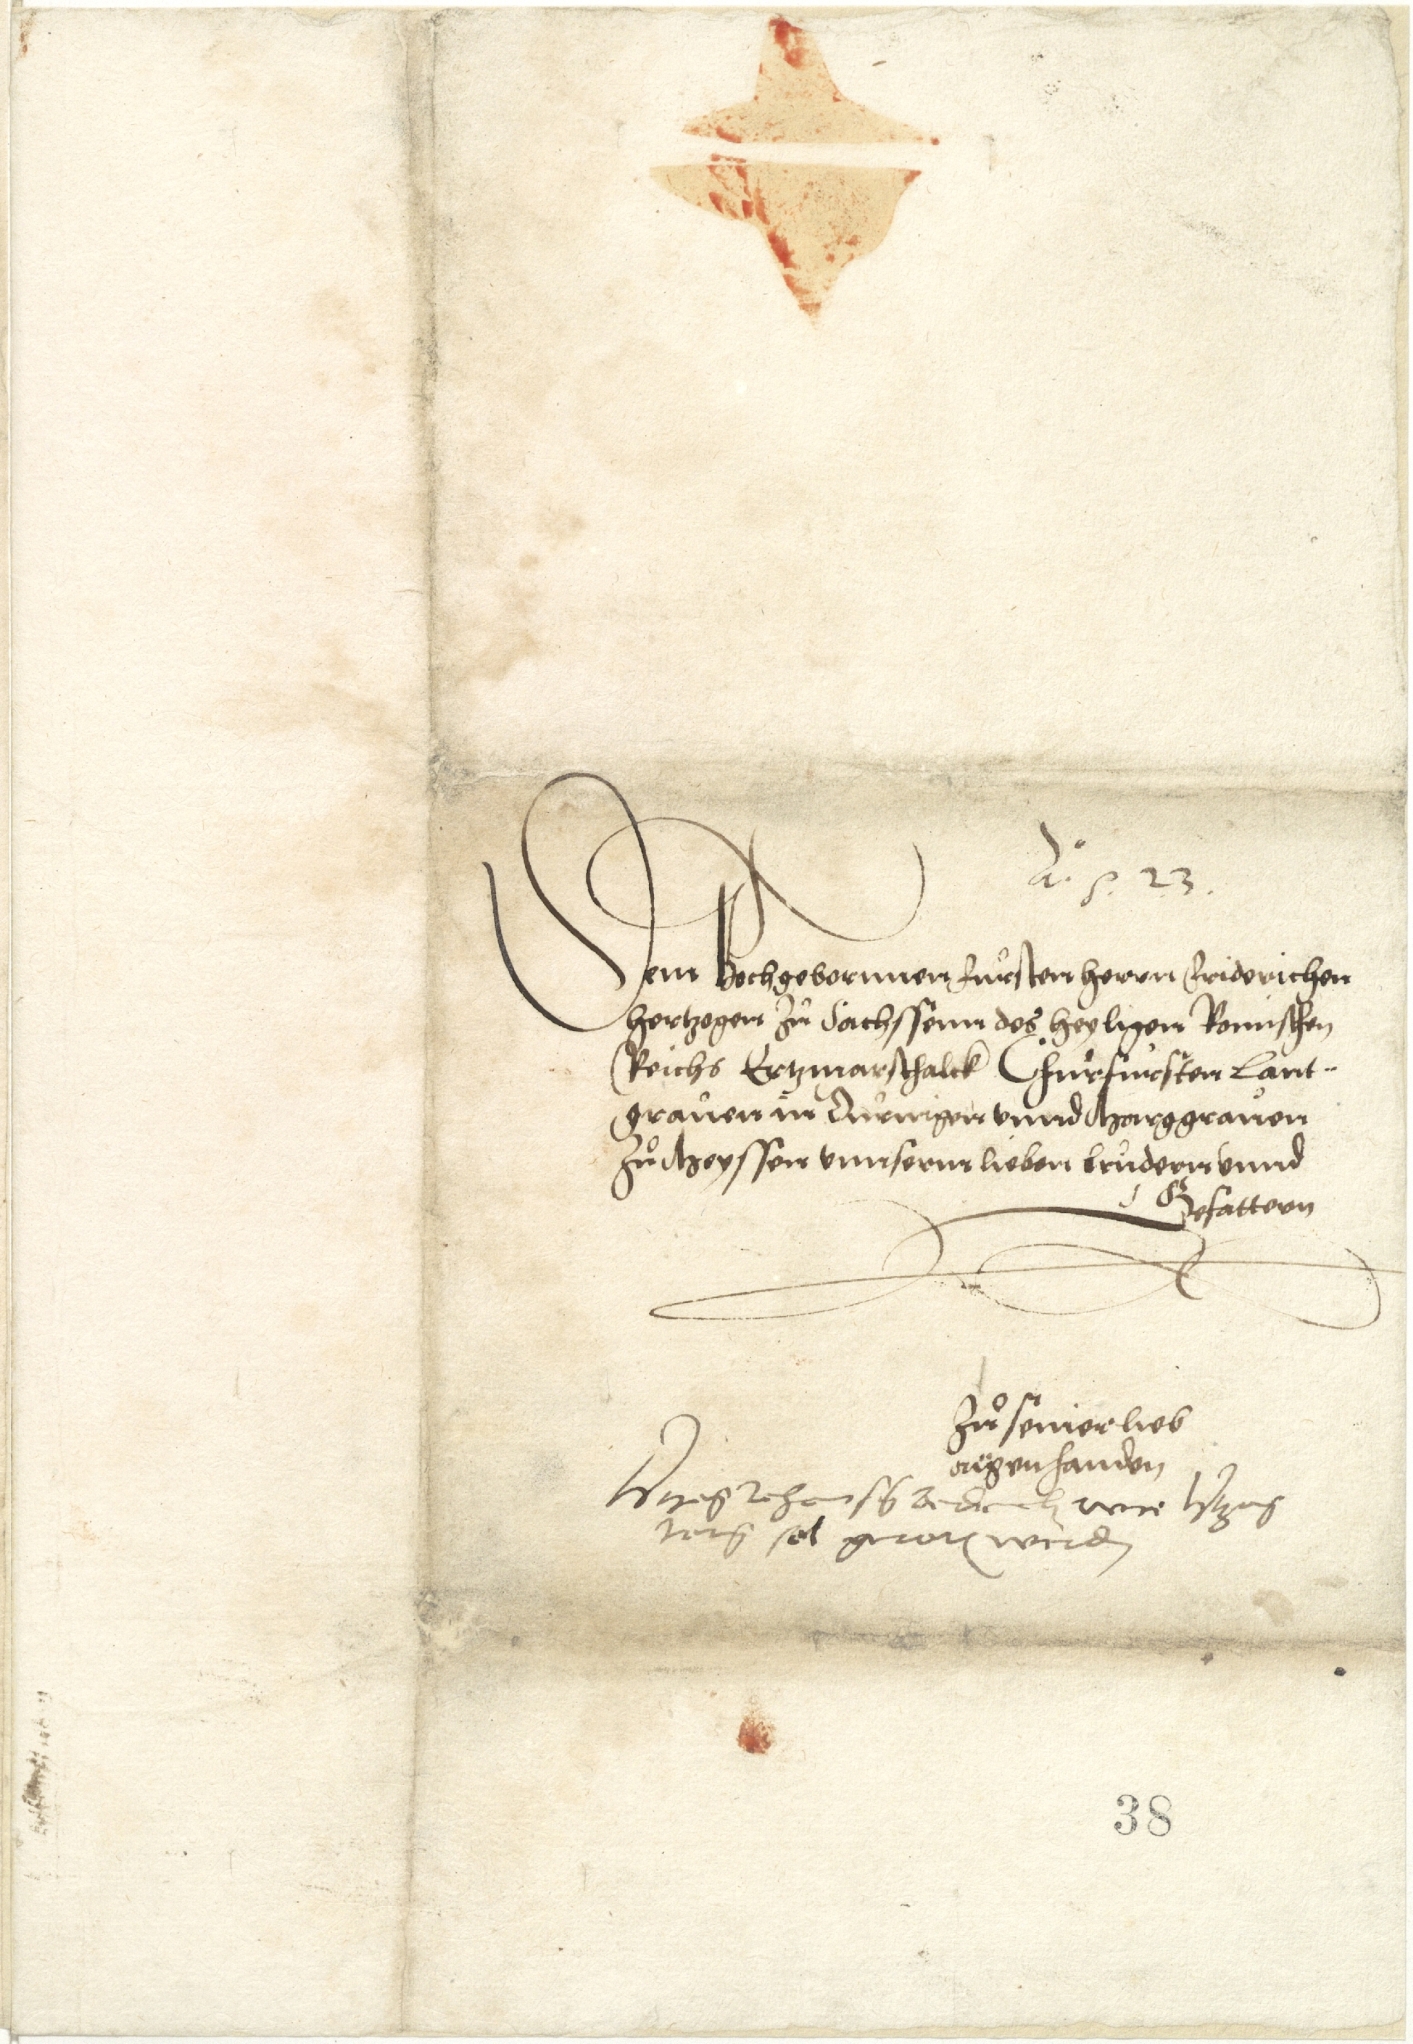 Aº 23.
Dem Hochgebornnen fursten herrn Friderichen
hertzogen zů Sachssenn des heyligen Romischen
Reichs Ertzmarschalck Churfursten Lant-
grauen in Duringen vnnd Marggrauen
zů Meyssen vnnserm lieben bruderm vnnd
Gefattern
Zů seiner lieb
aigen handen
wie
sol werden
38